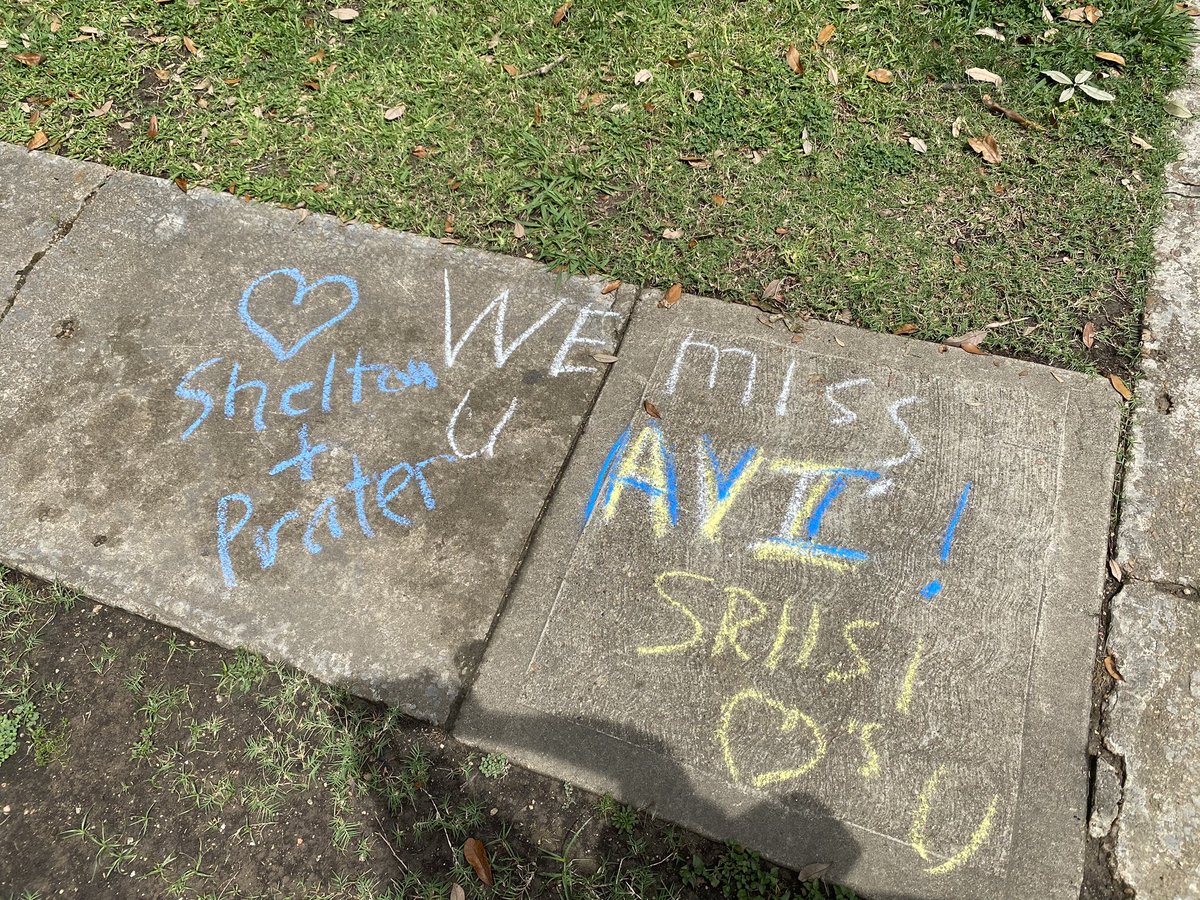 WE miss
U
AVI !
SRHS
♡'s U
♡
Shelton
+
Prater